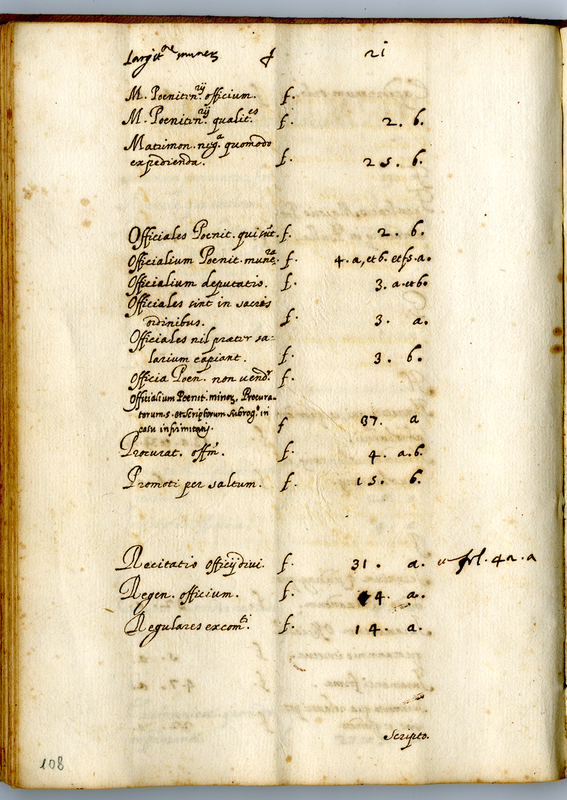 Largit.ne munez f 21
M. Poeniten.rij officium. f.
M. Poenitin.rij qualit.es f. 2. b.
Matrimon. neg.a quomodo
expedienda. f. 25. b.
Officiales Poenit. qui sūt. f. 2. b.
Officialium Poenit. mun.ra f. 4. a, et b. et f 5. a.
Officialium deputatio. f. 3. a. et b.
Officiales sint in sacris
ordinibus. f. 3. a.
Officiales nil præter sa-
larium capiant. f. 3. b.
Officia Poen. non vend.r f.
Offitialium Poenit. minoz, Procura-
torum s. et scriptorum subrog.o in
casu infirmitatis. f 37. a
Procurat. offm. f. 4. a. b.
Promoti per saltum. f. 15. b.
Recitatio officij divi. f. 31. a. et fol. 42. a
Regen. officium. f. 4. a.
Regulares excom.ti f. 14. a.
Scripto.
108